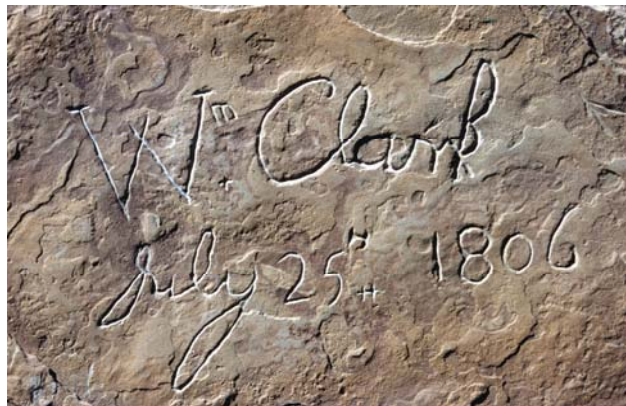 Wm Clark
July 25th 1806